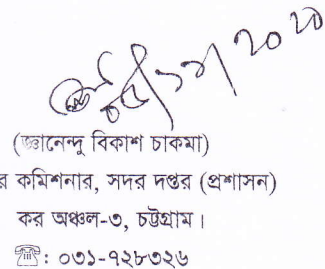 (জ্ঞানেন্দু বিকাশ চাকমা)
র কমিশনার, সদর দপ্তর (প্রশাসন)
কর অঞ্চল-৩, চট্টগ্রাম।
☎: ০৩১-৭২৮৩২৬